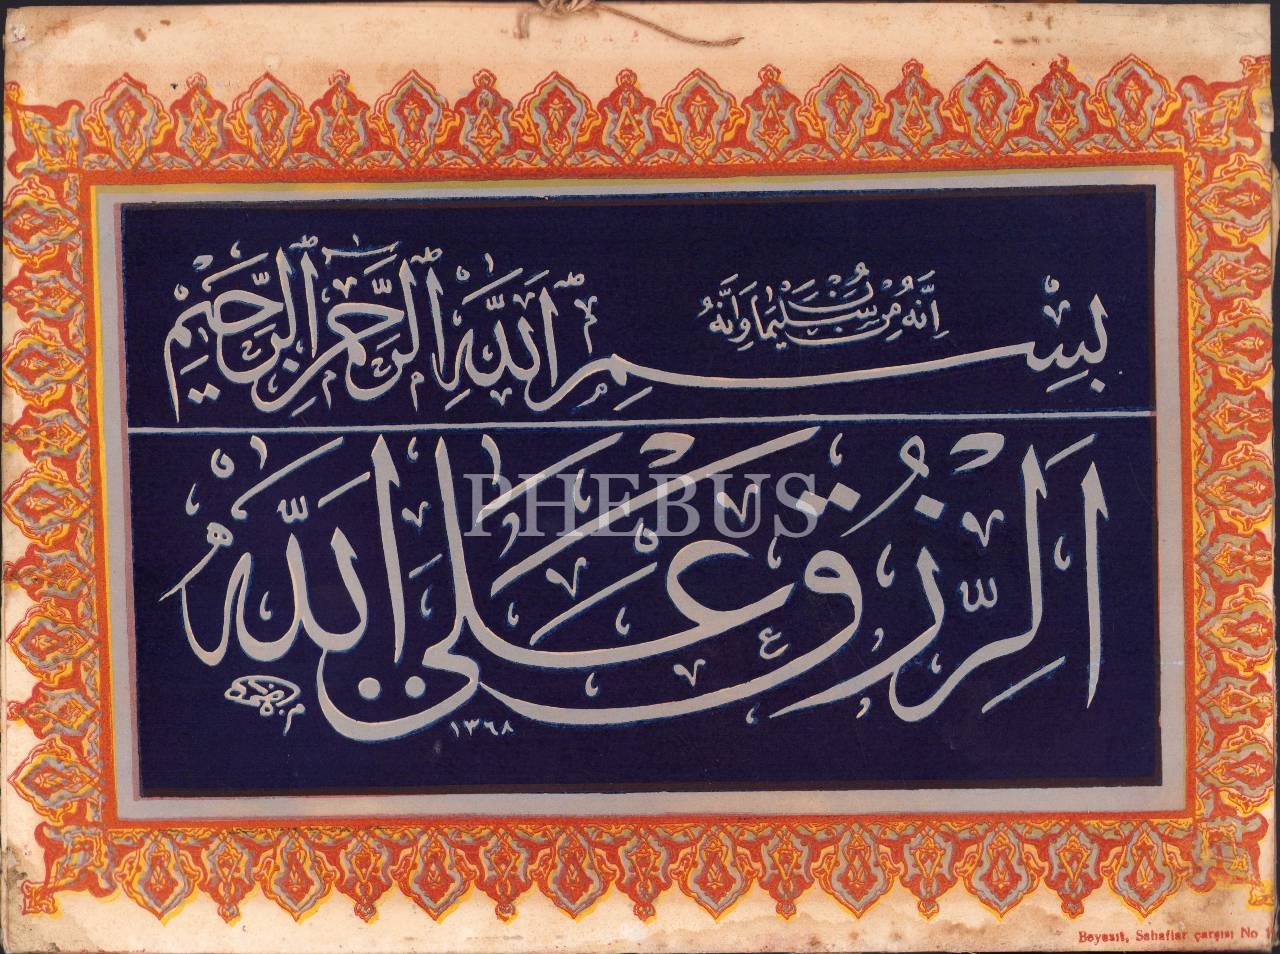 إنه من سليمان وإنه
بسم الله الرحمن الرحيم
الرزق على الله
١٣٦٨
PHEBUS
Beyazıt, Sahaflar çarşısı No 1